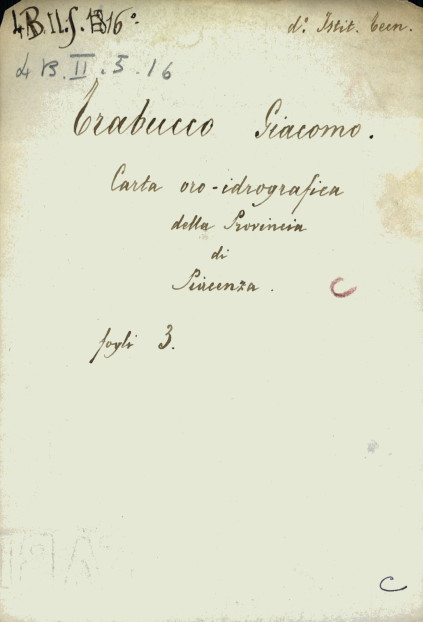 4.B.II.5.16°.
d°. Istit. Tecn.
4 B.II.5.16
Trabucco Giacomo.
Carta oro-idrografica
della Provincia
di
Piacenza.
C
fogli 3.
C